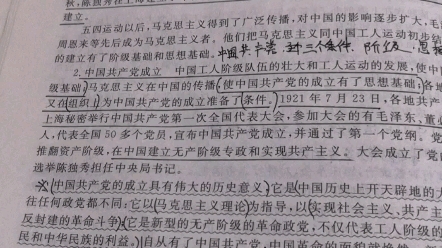 建立。
五四运动以后，马克思主义得到了广泛传播，对中国的影响逐步扩大，毛
周恩来等先后成为马克思主义者，他们把马克思主义同中国工人运动初步结
的建立有了阶级基础和思想基础。中国共产党 三个条件 阶级 思
2.中国共产党成立 中国工人阶级队伍的壮大和工人运动的发展，使中
级基础；马克思主义在中国的传播，使中国共产党的成立有了思想基础；各地
又在组织上为中国共产党的成立准备了条件。1921年7月23日，各地共产
上海秘密举行中国共产党第一次全国代表大会，参加大会的有毛泽东、董必
人，代表全国50多个党员，宣布中国共产党成立，并通过了第一个党纲。党
推翻资产阶级，在中国建立无产阶级专政和实现共产主义。大会成立了党
选举陈独秀担任中央局书记。
中国共产党的成立具有伟大的历史意义，它是中国历史上开天辟地的大
往任何政党都不同；它以马克思主义理论为指导，以实现社会主义、共产主
反封建的革命斗争；它是新型的无产阶级的革命政党，不仅代表工人阶级的
民和中华民族的利益。自从有了中国共产党，中国革命的面貌就焕然